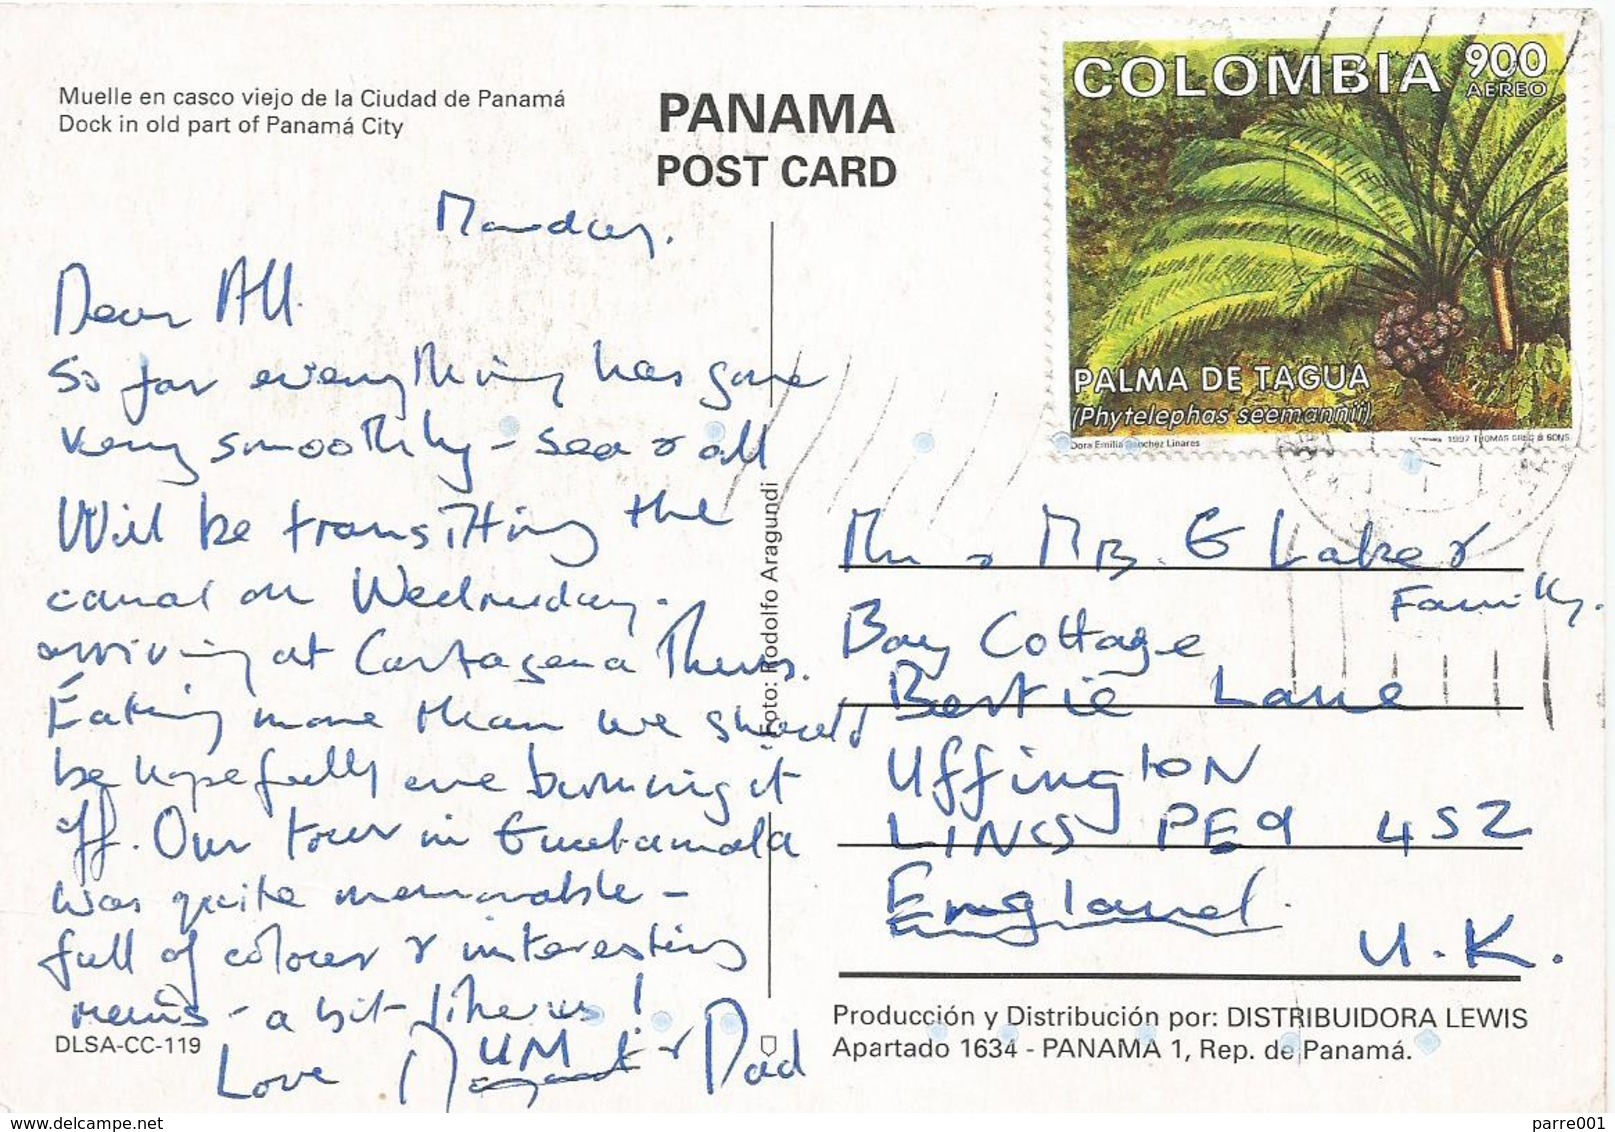 Muelle en casco viejo de la Ciudad de Panamá
Dock in old part of Panamá City
PANAMA
POST CARD
COLOMBIA 900
AEREO
PALMA DE TAGUA
(Phytelephas seemannii)
Dora Emilia Sánchez Linares
1997 THOMAS GREG & SONS
Monday.
Dear All.
So far everything has gone
very smoothly - sea & all
Will be transitting the
canal on Wednesday.
arriving at Cartagena Thurs.
Eating more than we should
be hopefully are burning it
off. Our tour in Guatamala
was quite memorable -
full of colour & interesting
ruins - a bit like us!
Love MUM & Dad
Mr & Mrs. G Laker &
Family.
Bay Cottage
Bertie Lane
Uffington
LINCS PE9 4SZ
England.
U.K.
Foto: Rodolfo Aragundi
DLSA-CC-119
Producción y Distribución por: DISTRIBUIDORA LEWIS
Apartado 1634 - PANAMA 1, Rep. de Panamá.
www.delcampe.net
parre001